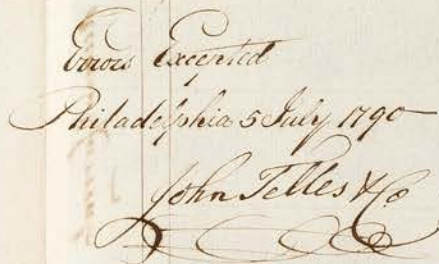 Errors Excepted
Philadelphia 5 July 1790
John Telles & Co